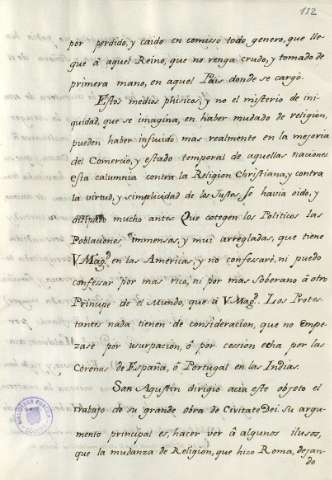 112
por perdido, y caido en comiso todo genero, que lle-
gue â aquel Reino, que no venga crudo, y tomado de
primera mano, en aquel Pais donde se cargó.
Estos medios phisicos, y no el misterio de ini-
quidad, que se imagina, en haber mudado de religion,
pueden haber influido mas realmente en la mejoria
del Comercio, y estado temporal de aquellas naciones
esta calumnia contra la Religion Christiana, y contra
la virtud, y simplicidad de los Justos, se havia oido, y
mucho antes Que cotegen los Politicos las
Poblaciones inmensas, y mui arregladas, que tiene
V. Magd. en las Americas, y no confesaré, ni puedo
confesar por mas rico, ni por mas Soberano â otro
Principe de el Mundo, que â V. Magd. Los Protes-
tantes nada tienen de consideracion, que no empe-
zase por usurpacion, ô por cession echa por las
Coronas de España, ô Portugal en las Indias.
San Agustin dirigio acia este objeto el
trabajo de su grande obra de Civitate Dei: su argu-
mento principal es, hacer ver â algunos ilusos,
que la mudanza de Religion, que hizo Roma, dejan-
do